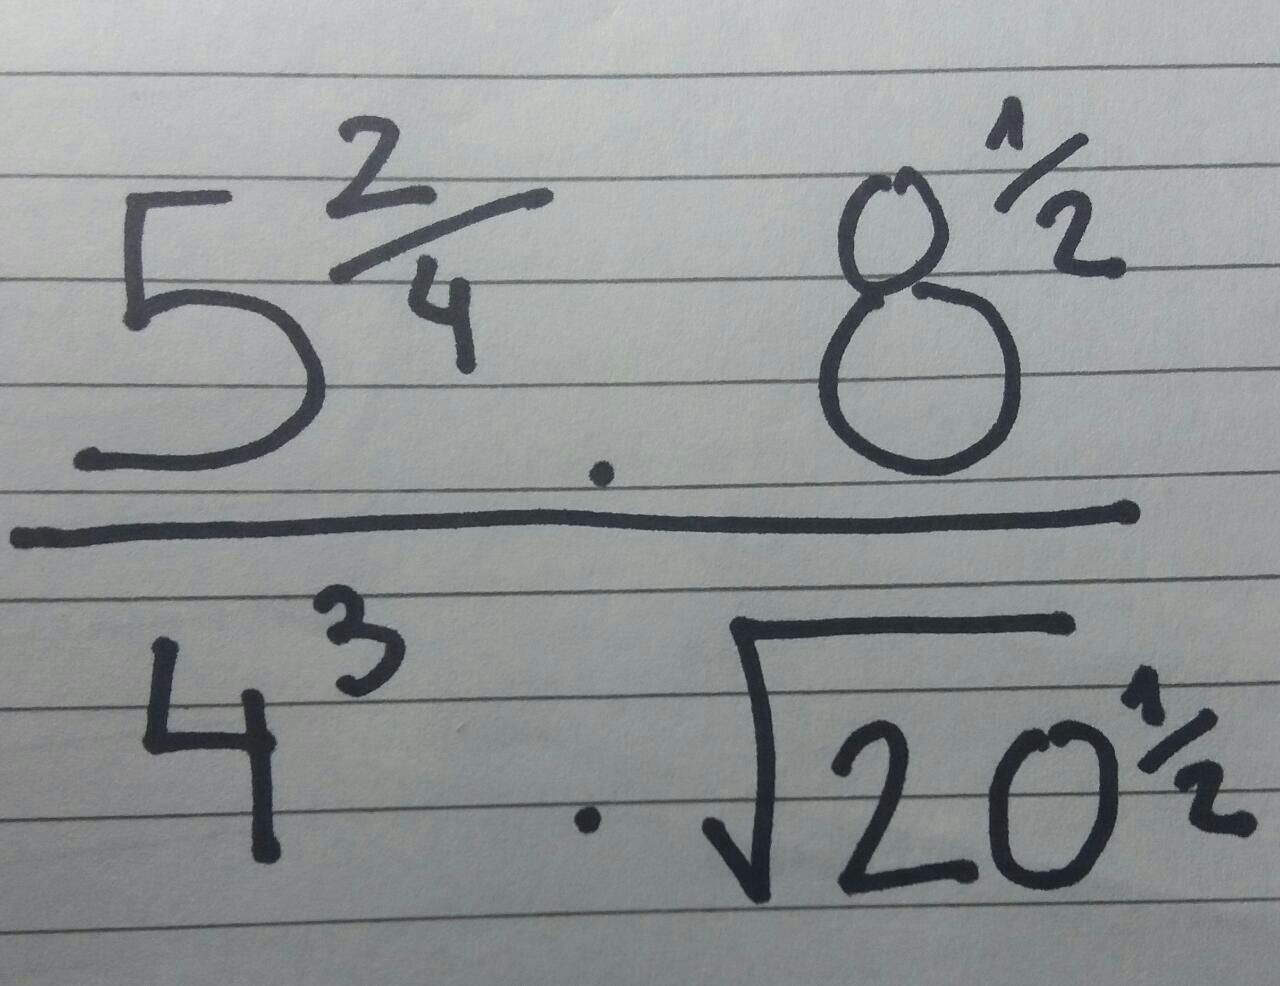 5^{2/4} . 8^{1/2}
4^3 . √20^{1/2}